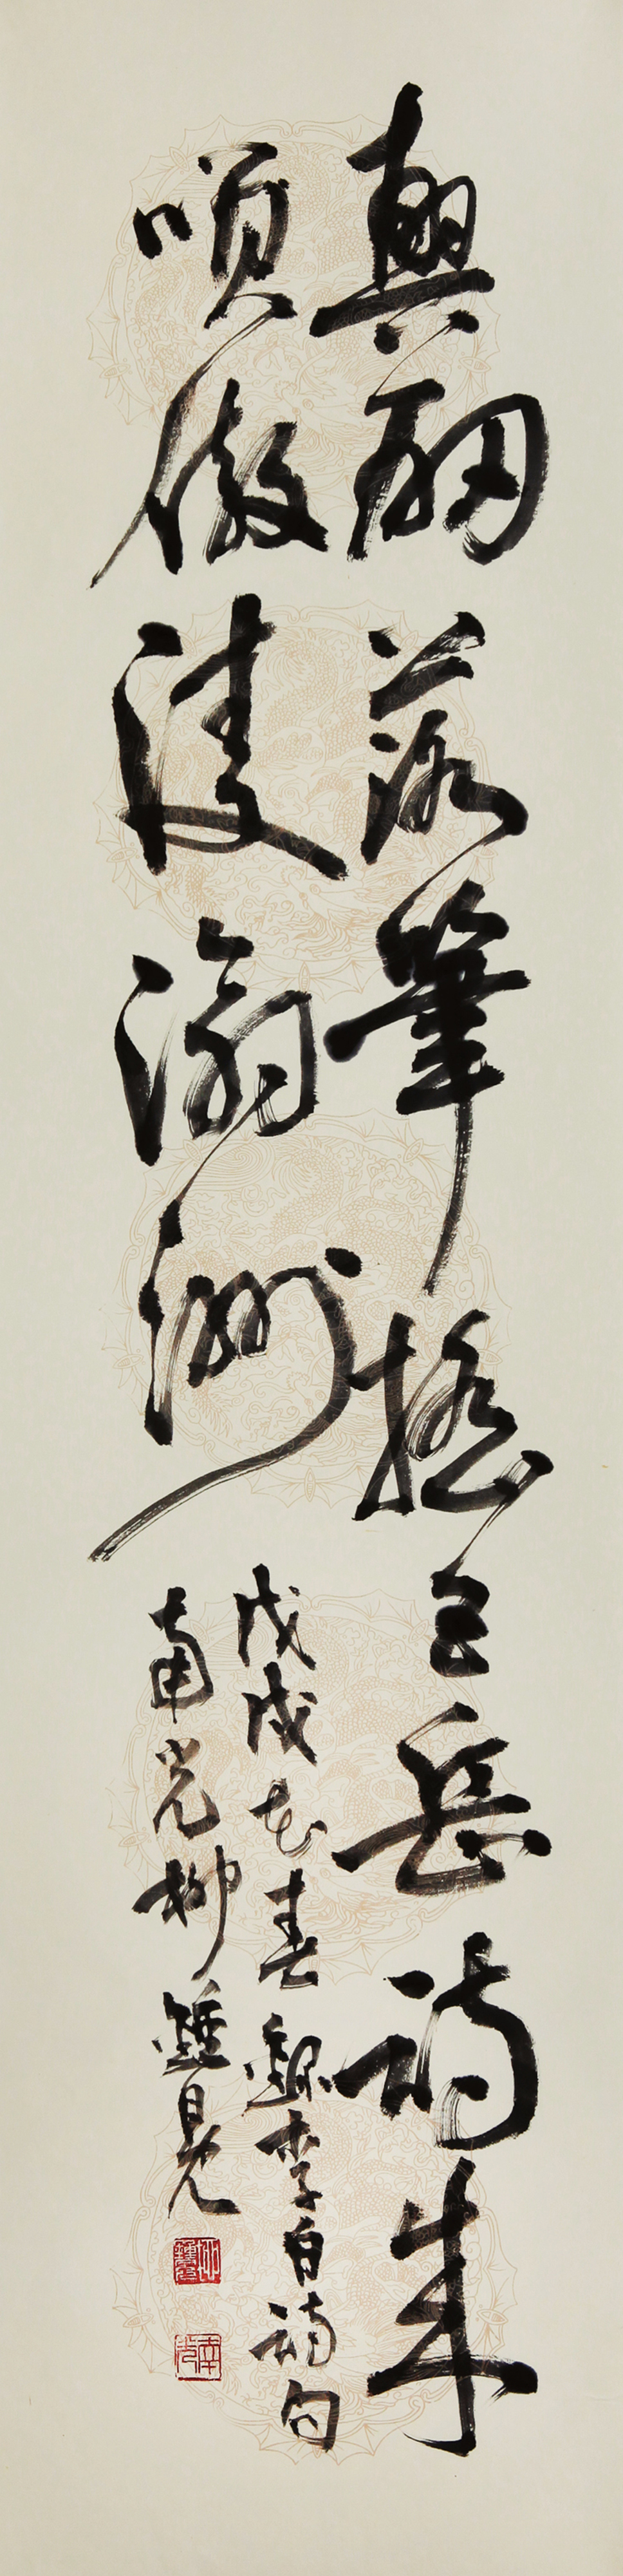 興酣落筆搖五岳詩成
咲傲凌滄洲
戊戌 春 錄李白詩句
南光柳鍾晃